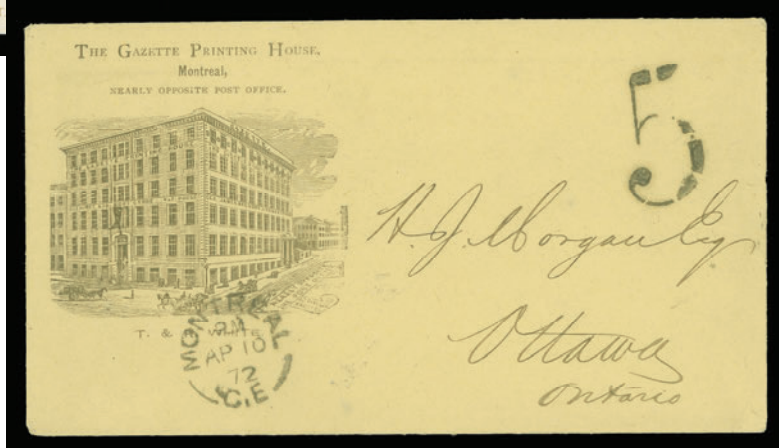 THE GAZETTE PRINTING HOUSE,
Montreal,
NEARLY OPPOSITE POST OFFICE.
T. & R. WHITE
MONTREAL
PM
AP 10
72
C.E
5
H. J. Morgan Esq
Ottawa
Ontario